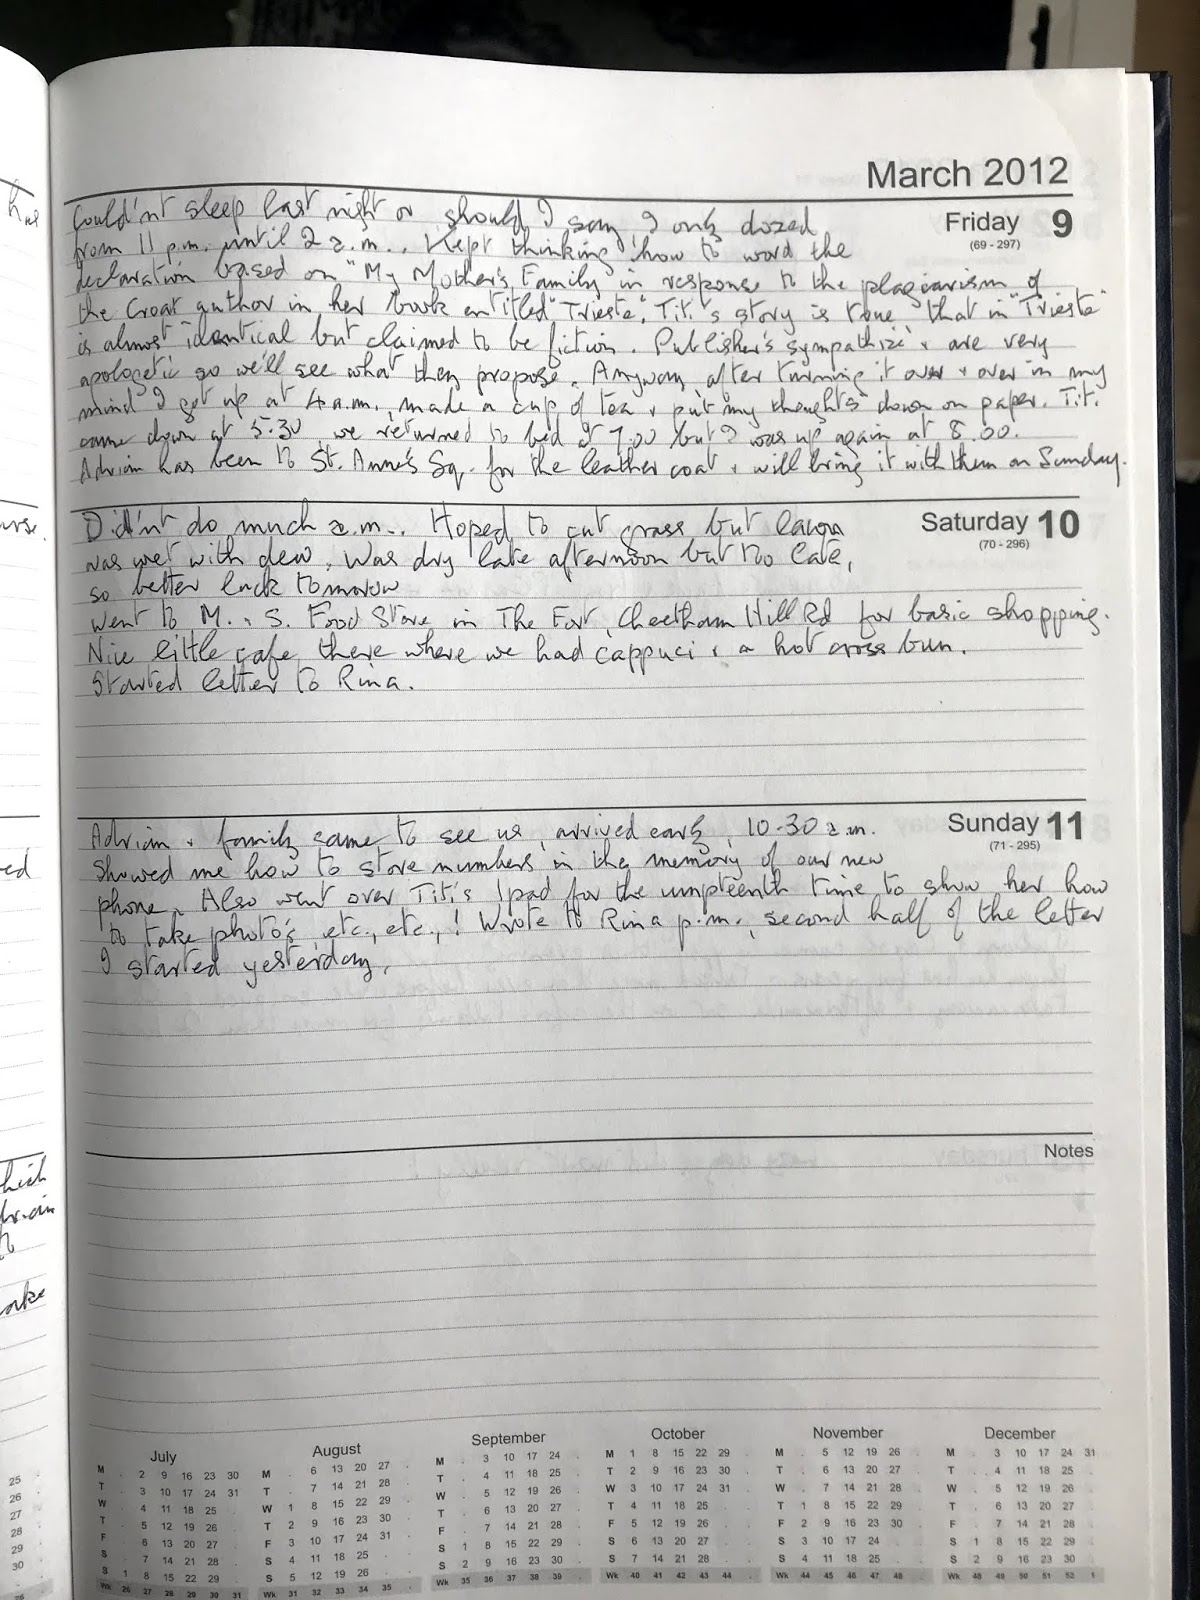 March 2012
Friday 9
(69 - 297)
Could'nt sleep last night or should I say I only dozed
from 11 p.m. until 2 a.m.. Kept thinking how to word the
declaration based on "My Mother's Family in response to the plagiarism of
the Croat author in her book entitled "Trieste". Tit.'s story is true that in "Trieste"
is almost identical but claimed to be fiction. Publisher's sympathize & are very
apologetic so we'll see what they propose. Anyway after turning it over & over in my
mind I got up at 4 a.m., made a cup of tea & put my thoughts down on paper. Tit.
came down at 5.30, we returned to bed at 7.00 but I was up again at 8.00.
Adrian has been to St. Anne's Sq. for the leather coat & will bring it with them on Sunday.
Saturday 10
(70 - 296)
Did'nt do much a.m.. Hoped to cut grass but lawn
was wet with dew. Was dry late afternoon but too late,
so better luck tomorrow
Went to M. & S. Food Store in The Fort, Cheetham Hill Rd for basic shopping.
Nice little cafe there where we had cappuci & a hot cross bun.
Started letter to Rina.
Sunday 11
(71 - 295)
Adrian & family came to see us, arrived early, 10-30 a.m.
Showed me how to store numbers in the memory of our new
phone. Also went over Tit.'s Ipad for the umpteenth time to show her how
to take photo's etc., etc.,! Wrote to Rina p.m., second half of the letter
I started yesterday.
Notes
July
M . 2 9 16 23 30
T . 3 10 17 24 31
W . 4 11 18 25 .
T . 5 12 19 26 .
F . 6 13 20 27 .
S . 7 14 21 28 .
S 1 8 15 22 29 .
Wk 26 27 28 29 30 31
August
M . 6 13 20 27 .
T . 7 14 21 28 .
W 1 8 15 22 29 .
T 2 9 16 23 30 .
F 3 10 17 24 31 .
S 4 11 18 25 .
S 5 12 19 26 .
Wk 31 32 33 34 35 .
September
M . 3 10 17 24 .
T . 4 11 18 25 .
W . 5 12 19 26 .
T . 6 13 20 27 .
F . 7 14 21 28 .
S 1 8 15 22 29 .
S 2 9 16 23 30 .
Wk 35 36 37 38 39 .
October
M 1 8 15 22 29 .
T 2 9 16 23 30 .
W 3 10 17 24 31 .
T 4 11 18 25 .
F 5 12 19 26 .
S 6 13 20 27 .
S 7 14 21 28 .
Wk 40 41 42 43 44 .
November
M . 5 12 19 26 .
T . 6 13 20 27 .
W . 7 14 21 28 .
T 1 8 15 22 29 .
F 2 9 16 23 30 .
S 3 10 17 24 .
S 4 11 18 25 .
Wk 44 45 46 47 48 .
December
M . 3 10 17 24 31
T . 4 11 18 25 .
W . 5 12 19 26 .
T . 6 13 20 27 .
F . 7 14 21 28 .
S 1 8 15 22 29 .
S 2 9 16 23 30 .
Wk 48 49 50 51 52 1
25
26
27
28
29
30